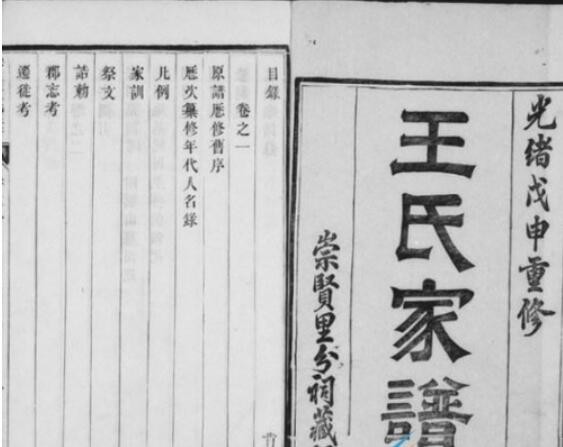 光绪戊申重修
王氏家譜
崇賢里分祠藏
目錄
卷之一
原譜歷修舊序
歷次纂修年代人名錄
凡例
家訓
祭文
誥勅
郡忘考
遷徙考